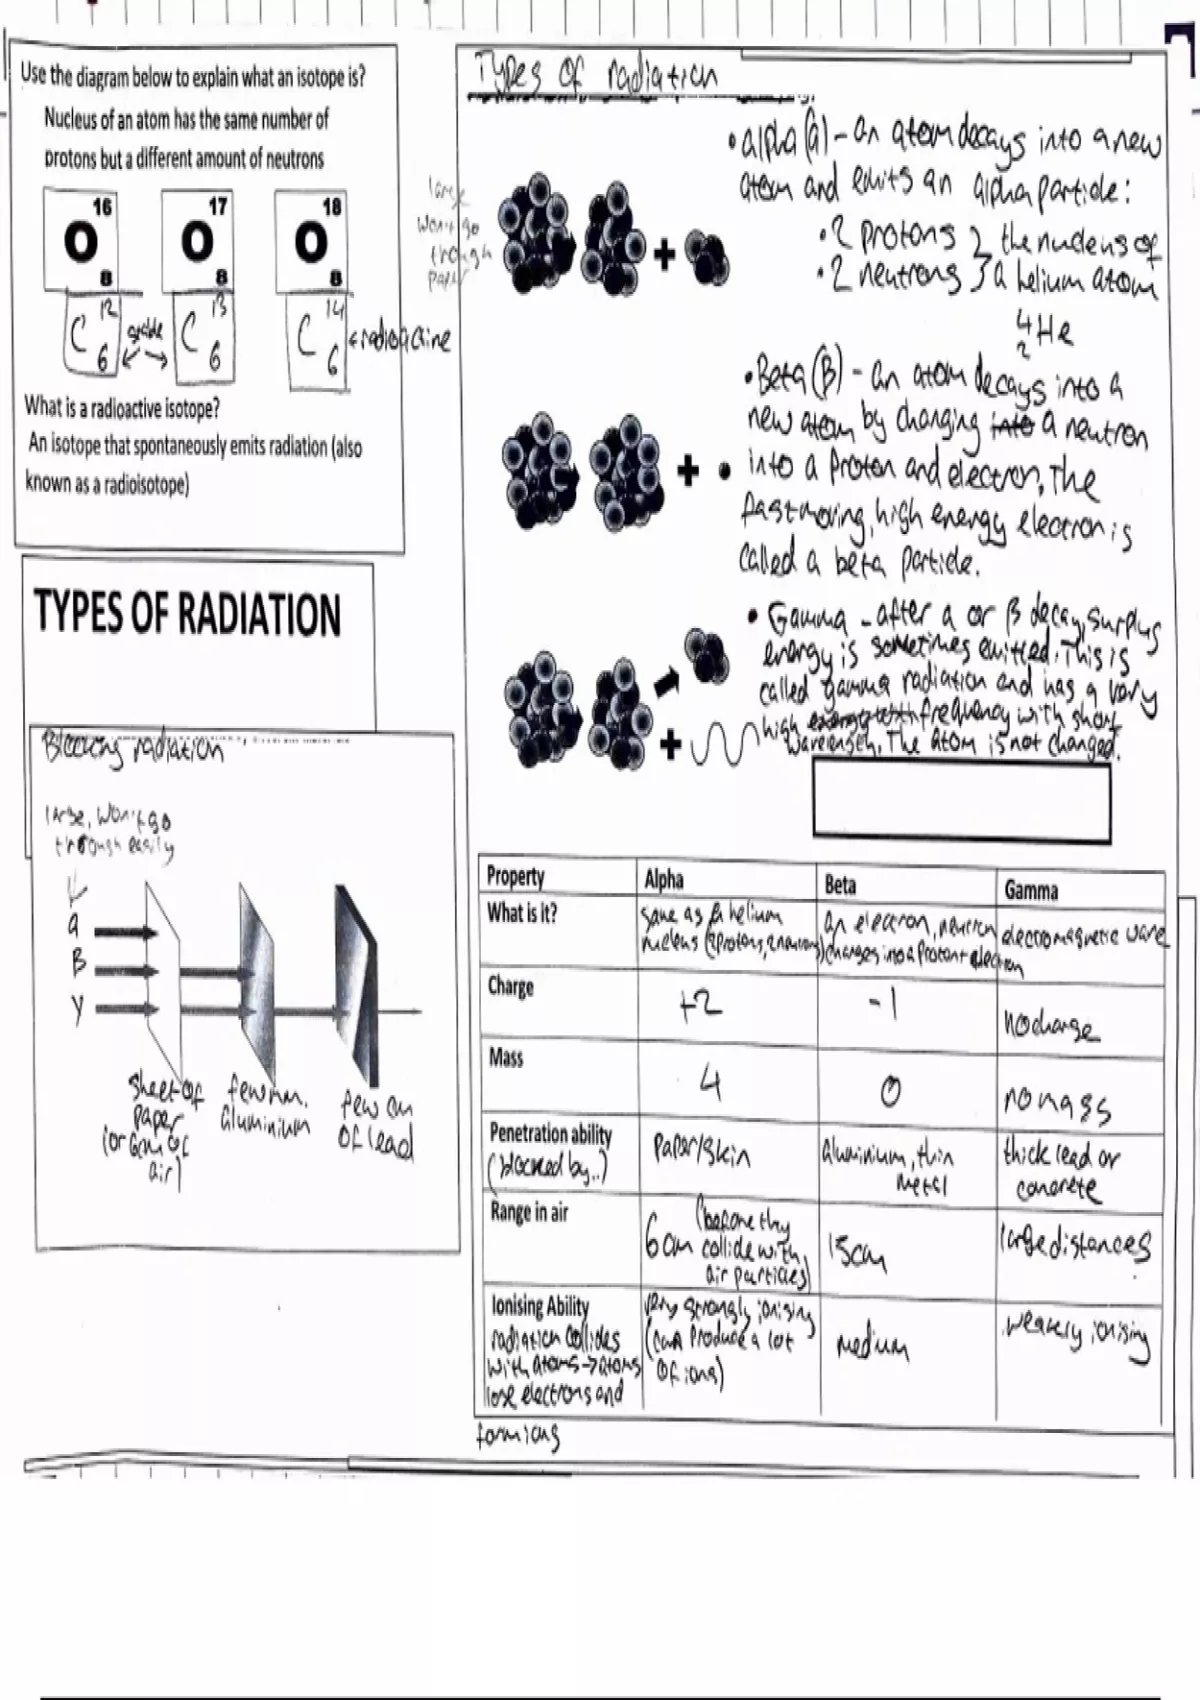 Use the diagram below to explain what an isotope is?
Nucleus of an atom has the same number of
protons but a different amount of neutrons
16 17 18
O O O
8 8 8
12 13 14
C C C
6 6 6
What is a radioactive isotope?
An isotope that spontaneously emits radiation (also
known as a radioisotope)
TYPES OF RADIATION
radiation
large, won't go
through easily
a
B
γ
sheet of
paper
(or 6cm of
air)
few mm.
aluminium
few cm
of lead
Types of radiation
large
won't go
through
paper
• alpha (a) - an atom decays into a new
atom and emits an alpha particle:
• 2 protons } the nucleus of
• 2 neutrons } a helium atom
4
He
2
• Beta (B) - an atom decays into a
new atom by changing into a neutron
into a proton and electron, The
fast moving, high energy electron is
called a beta particle.
• Gamma - after a or β decay, surplus
energy is sometimes emitted. This is
called gamma radiation and has a very
high frequency with short
wavelength. The atom is not changed.
Property Alpha Beta Gamma
What is it?
same as a helium
nucleus (2protons, 2neutrons)
an electron, neutron
changes into a proton + electron
electromagnetic wave
Charge +2 -1 no charge
Mass 4 0 no mass
Penetration ability
(blocked by..)
Paper/skin
aluminium, thin
metal
thick lead or
concrete
Range in air
6cm (before they
collide with
air particles)
15cm
large distances
Ionising Ability
radiation collides
with atoms → atoms
lose electrons and
very strongly ionising
(can produce a lot
of ions)
medium
weakly ionising